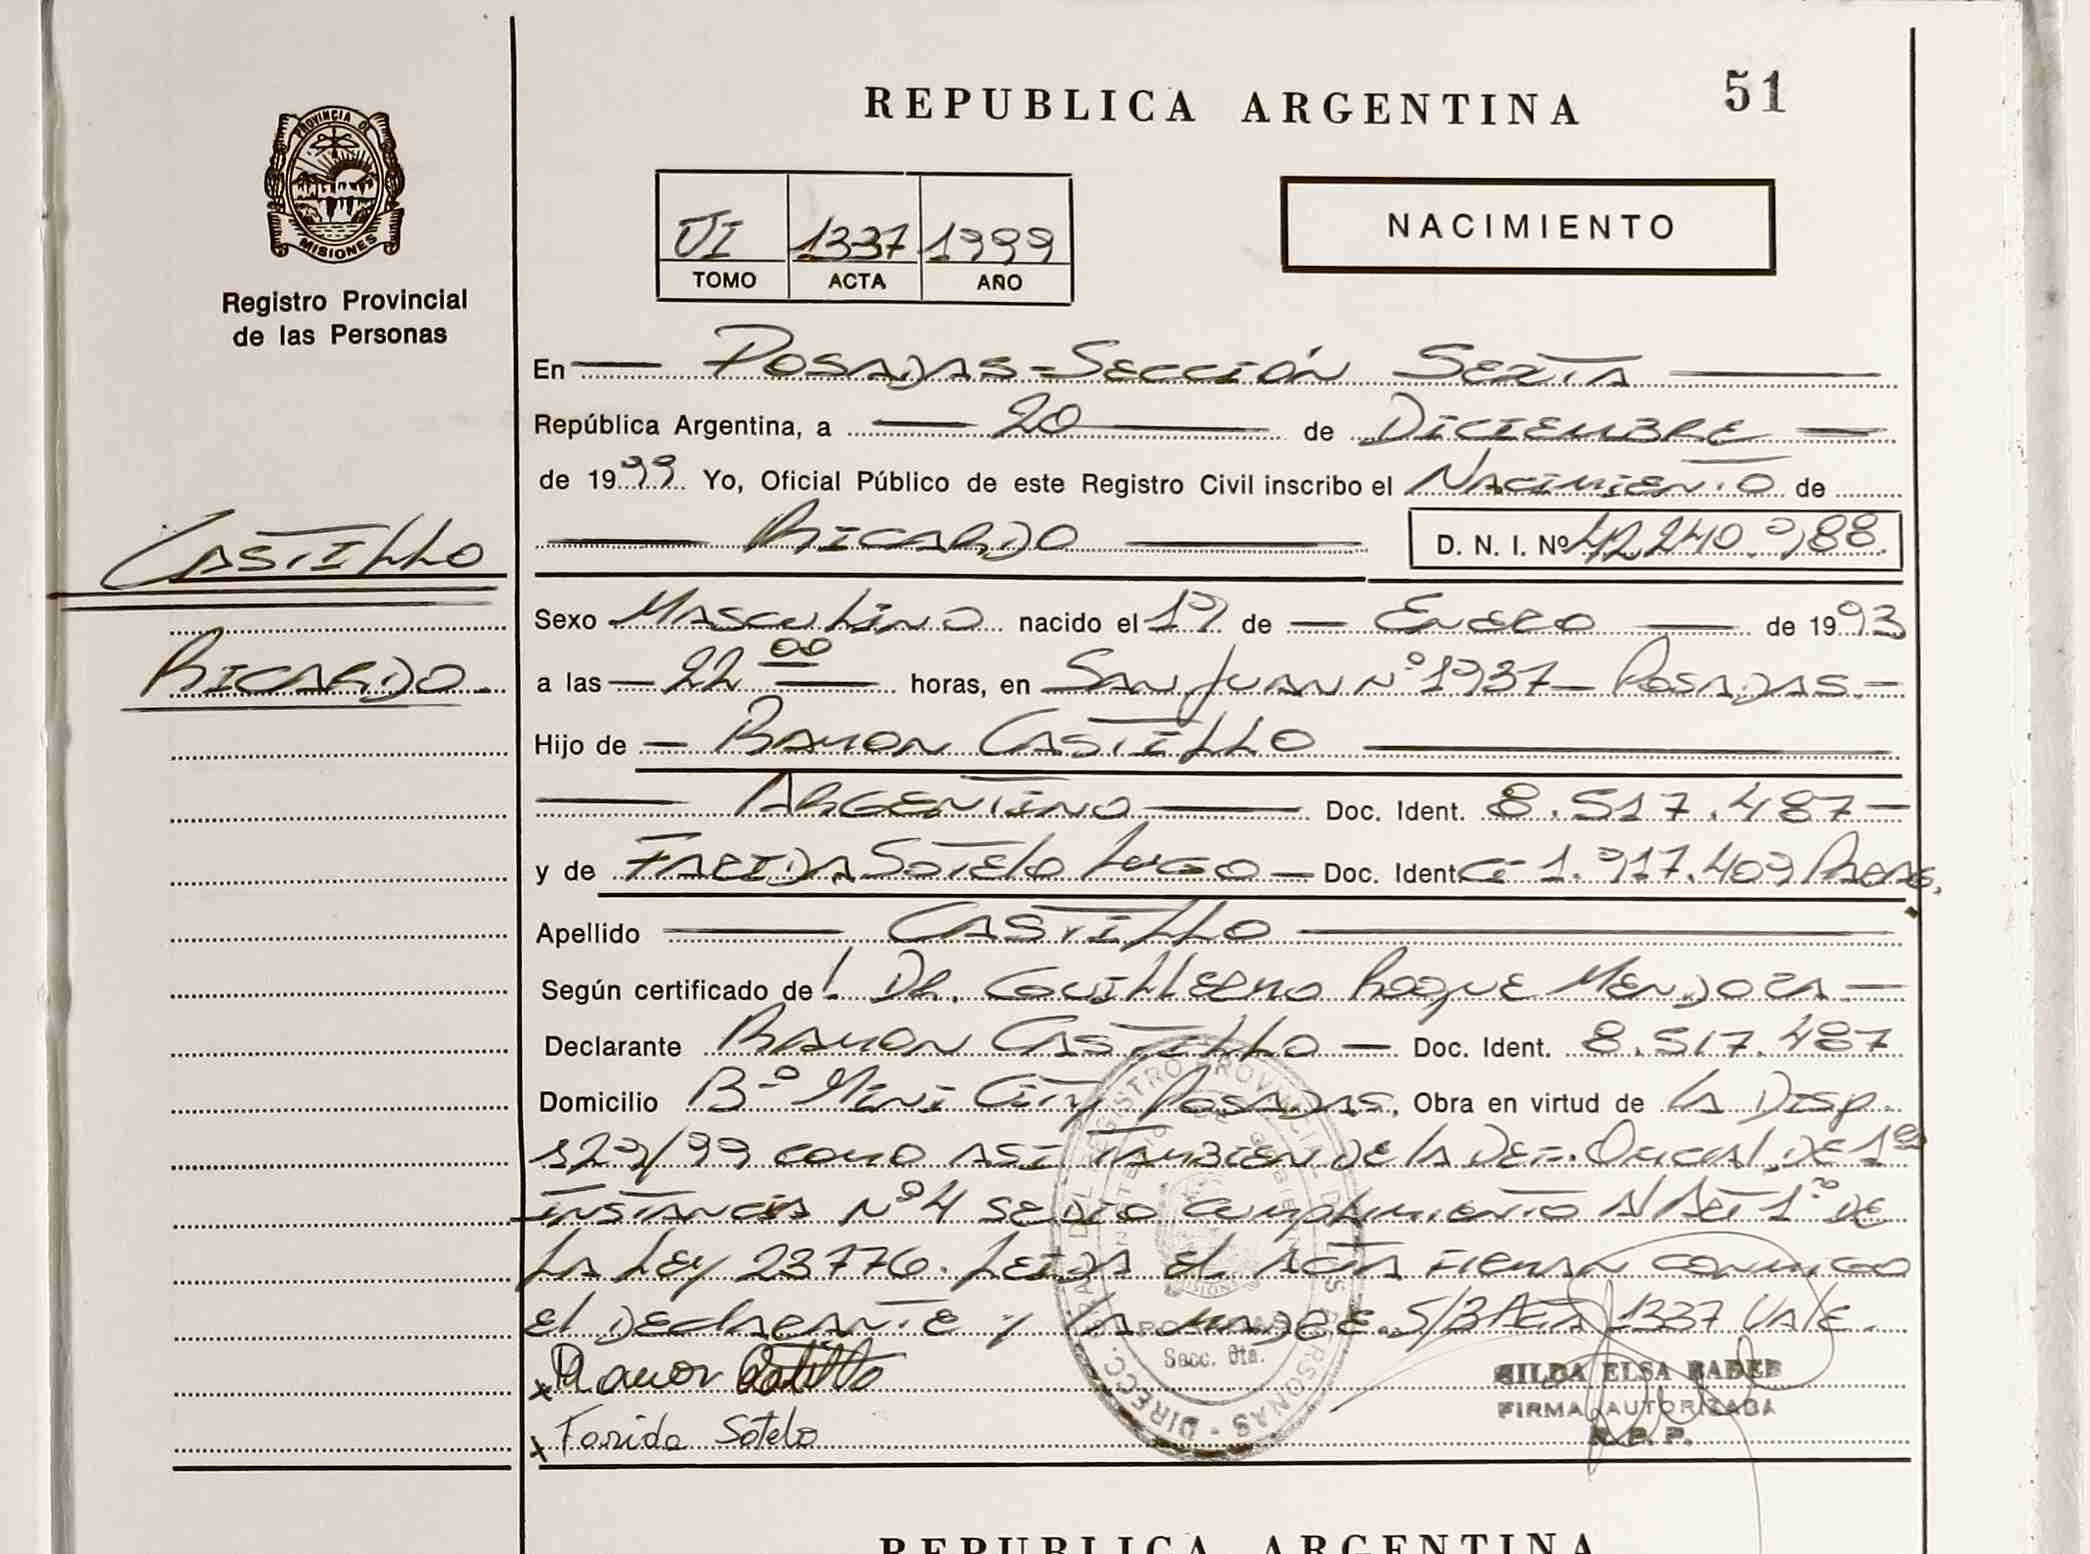 51
REPUBLICA ARGENTINA
PROVINCIA DE
MISIONES
Registro Provincial
de las Personas
VI 1337 1999
TOMO ACTA AÑO
NACIMIENTO
En POSADAS-SECCIÓN SEXTA
República Argentina, a 20 de DICIEMBRE
de 1999 Yo, Oficial Público de este Registro Civil inscribo el NACIMIENTO de
RICARDO D. N. I. Nº 42.240.988
CASTILLO
Sexo MASCULINO nacido el 19 de ENERO de 1993
RICARDO.
a las 22 00 horas, en SAN JUAN Nº 1937- POSADAS.-
Hijo de RAMON CASTILLO
ARGENTINO Doc. Ident. 8.517.487-
y de FARIDA SOTELO LUGO - Doc. Ident. CI 1.917.409 PARAG.
Apellido CASTILLO
Según certificado del DR. GUILLERMO ROQUE MENDOZA-
Declarante RAMON CASTILLO - Doc. Ident. 8.517.487
Domicilio Bº MINI CITY POSADAS, Obra en virtud de LA DISP.
129/99 COMO ASI TAMBIEN DE LA DEF. OFICIAL DE 1ra
INSTANCIA Nº 4 SE DIO CUMPLIMIENTO AL ART 1º DE
LA LEY 23776. LEIDA EL ACTA FIRMAN CONMIGO
EL DECLARANTE Y LA MADRE. S/B ACTA 1337 VALE.
x Ramon Castillo
x Farida Sotelo
Secc. 6ta.
GILDA ELSA BADER
FIRMA AUTORIZADA
R. P. P.
REPUBLICA ARGENTINA